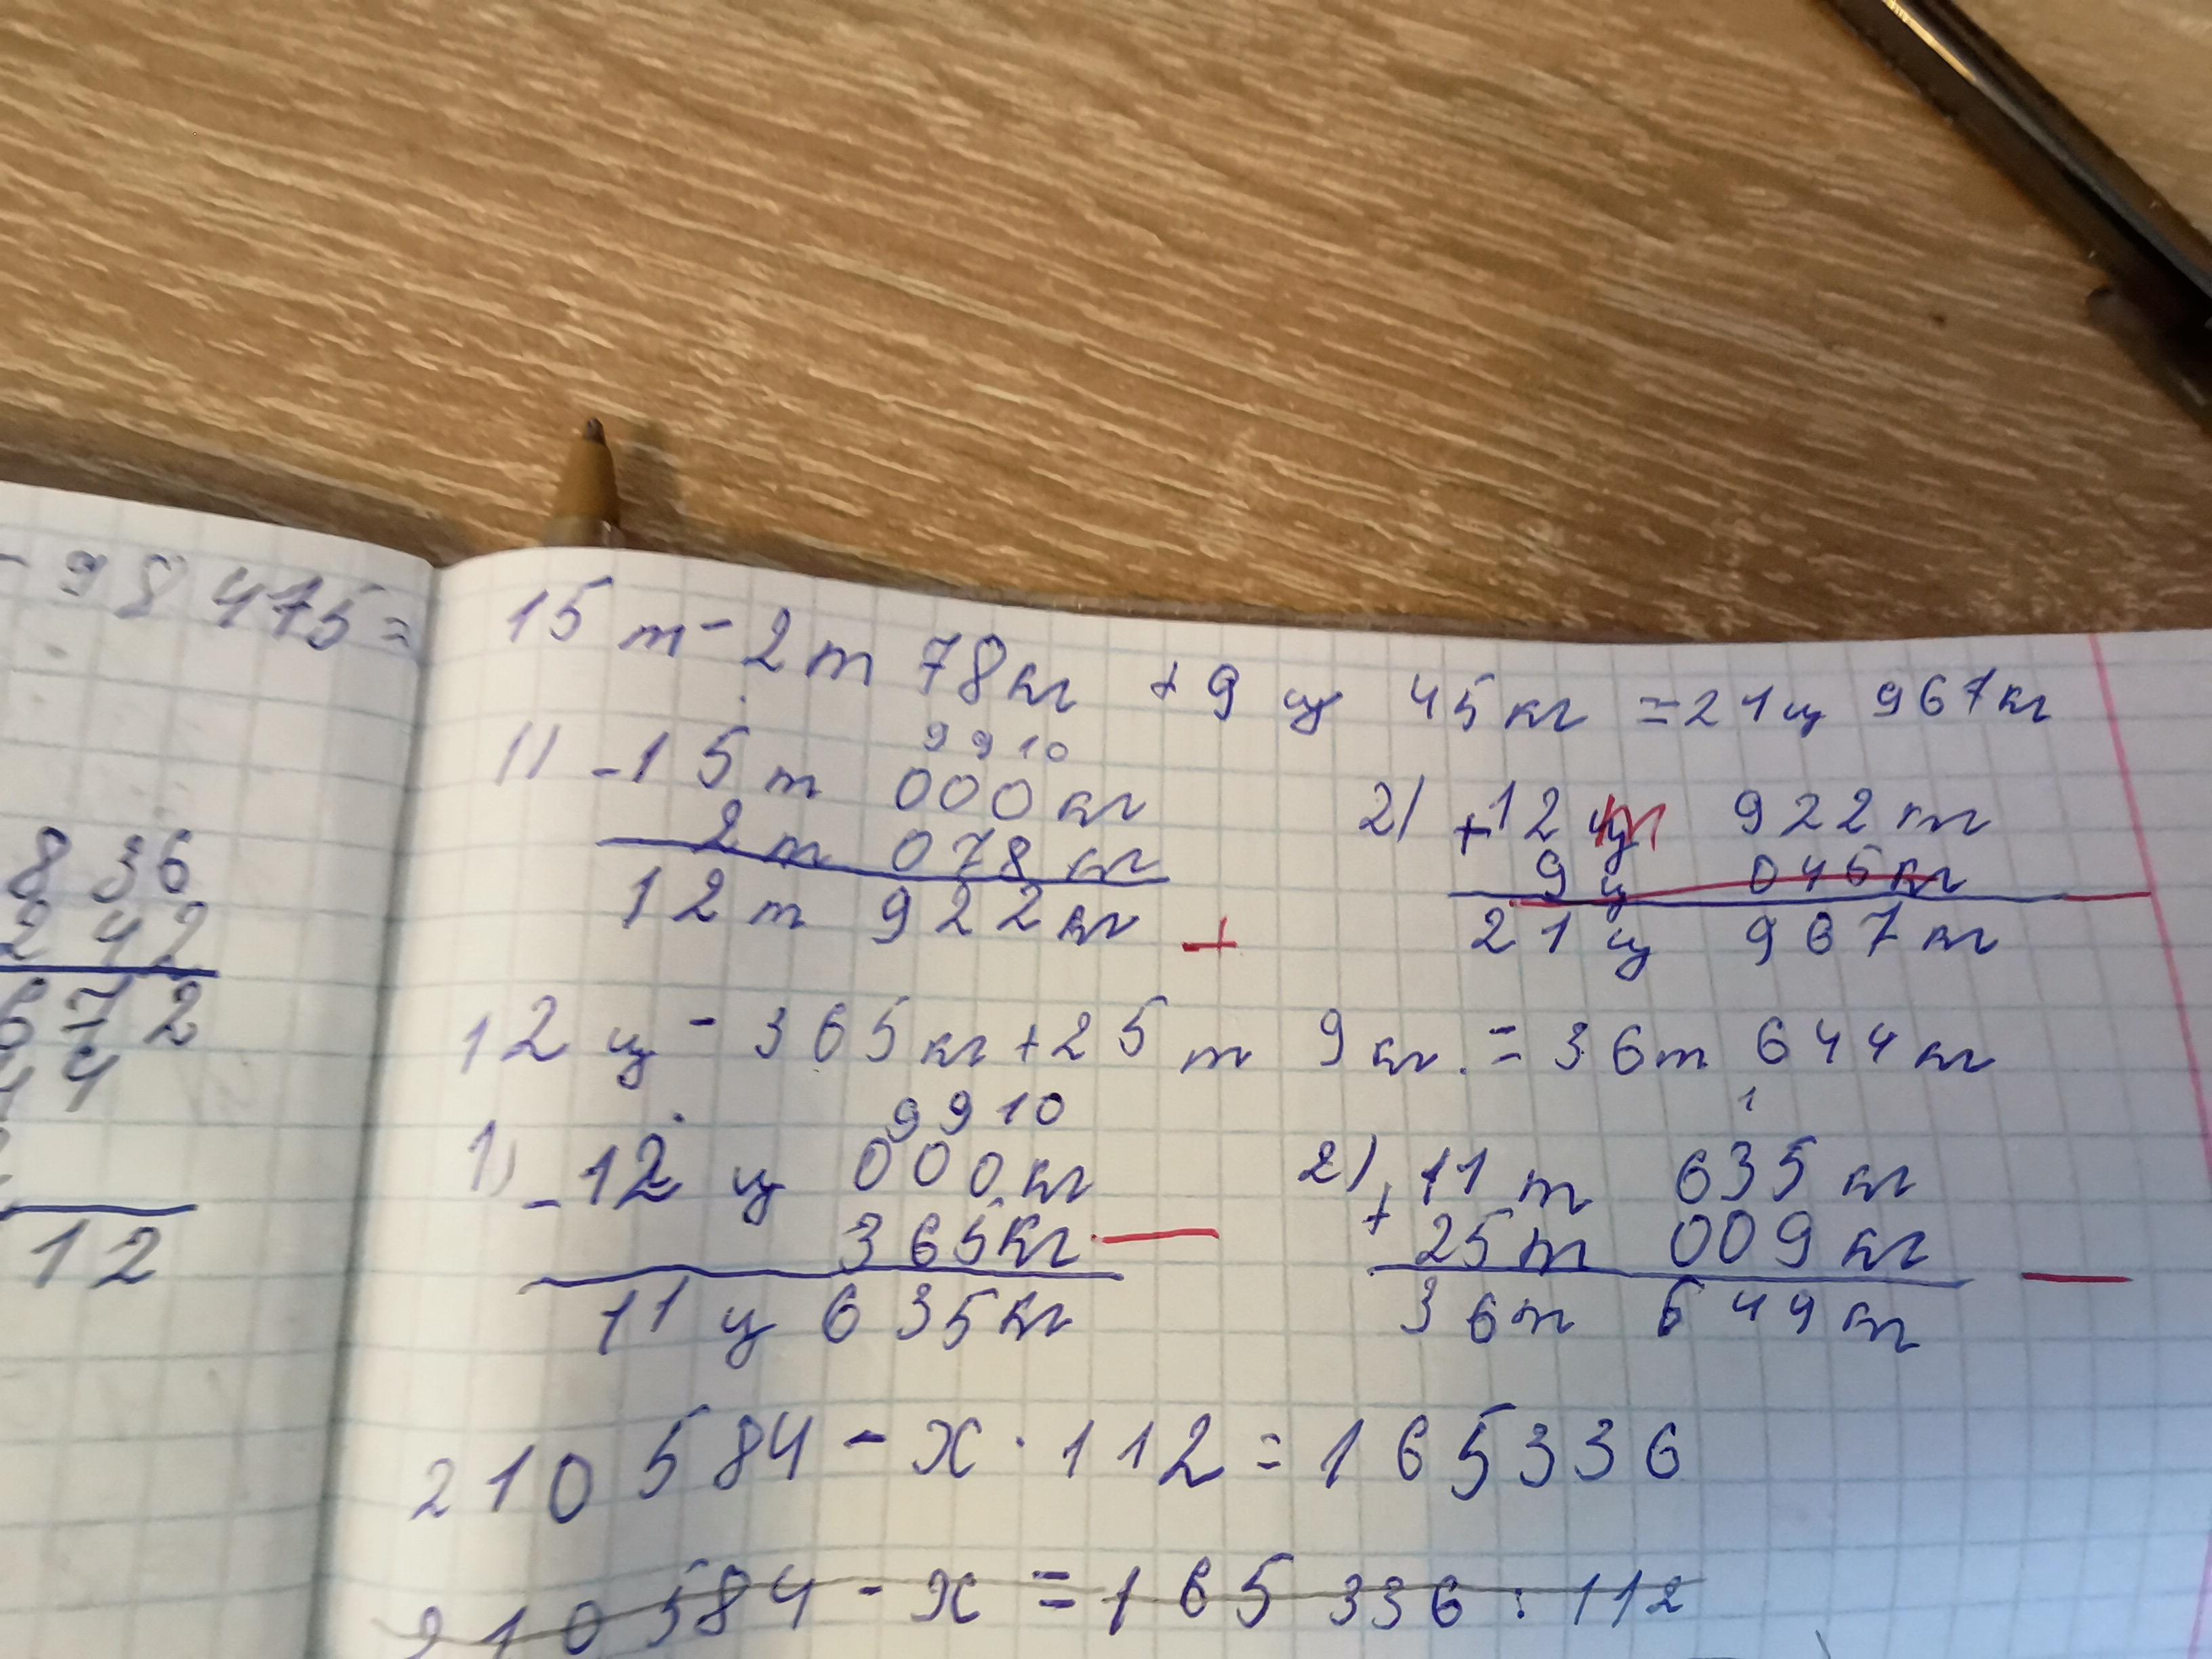 - 98 475 =
836
242
672
44
12
15 т - 2 т 78 кг + 9 ц 45 кг = 21 ц 967 кг
9 9 10
1) - 15 т 000 кг
2 т 078 кг
12 т 922 кг +
2) + 12 ц 922 кг
9 ц 045 кг
21 ц 967 кг
12 ц - 365 кг + 25 т 9 кг = 36 т 644 кг
9 9 10
1) - 12 ц 000 кг
365 кг
11 ц 635 кг
1
2) + 11 т 635 кг
25 т 009 кг
36 т 644 кг
210 584 - x · 112 = 165336
210 584 - x = 165 336 : 112